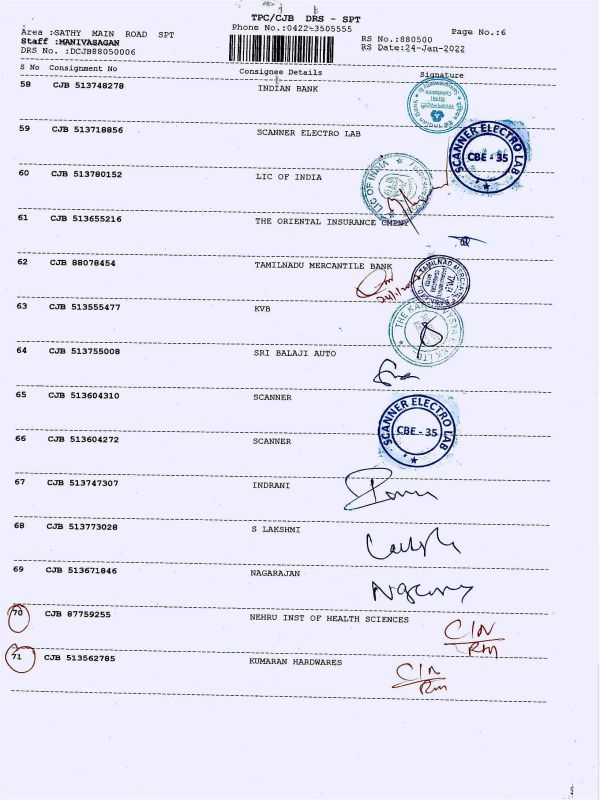 TPC/CJB DRS - SPT
Area :SATHY MAIN ROAD SPT Phone No.:0422-3505555 Page No.:6
Staff :MANIVASAGAN RS No.:880500
DRS No. :DCJB88050006 RS Date:24-Jan-2022
S No Consignment No Consignee Details Signature
58 CJB 513748278 INDIAN BANK
59 CJB 513718856 SCANNER ELECTRO LAB
SCANNER ELECTRO LAB
CBE - 35
60 CJB 513780152 LIC OF INDIA
LIC OF INDIA
61 CJB 513655216 THE ORIENTAL INSURANCE CMPNY
62 CJB 88078454 TAMILNADU MERCANTILE BANK
63 CJB 513555477 KVB
64 CJB 513755008 SRI BALAJI AUTO
65 CJB 513604310 SCANNER
SCANNER ELECTRO LAB
CBE - 35
66 CJB 513604272 SCANNER
67 CJB 513747307 INDRANI
68 CJB 513773028 S LAKSHMI
69 CJB 513671846 NAGARAJAN
70 CJB 87759255 NEHRU INST OF HEALTH SCIENCES
C/N
RM
71 CJB 513562785 KUMARAN HARDWARES
C/N
RM